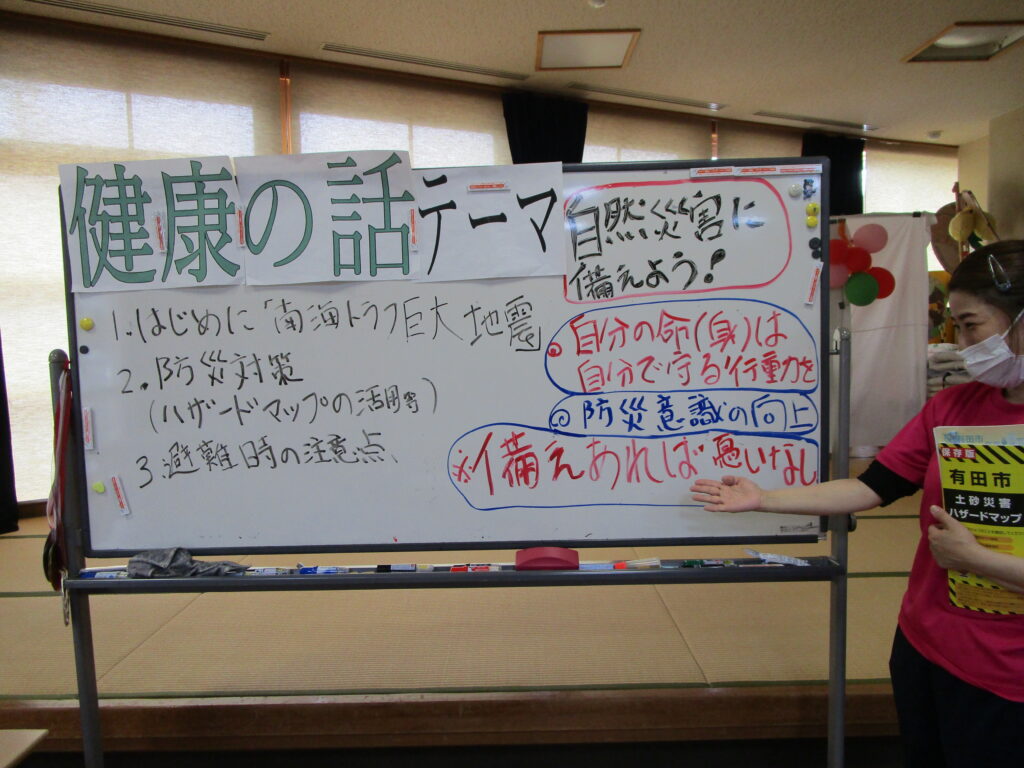 健康の話 テーマ
自然災害に
備えよう!
1. はじめに「南海トラフ巨大地震」
2. 防災対策
(ハザードマップの活用等)
3. 避難時の注意点
◎自分の命(身)は
自分で守る行動力を
◎防災意識の向上
※備えあれば憂いなし
保存版
有田市
土砂災害
ハザードマップ